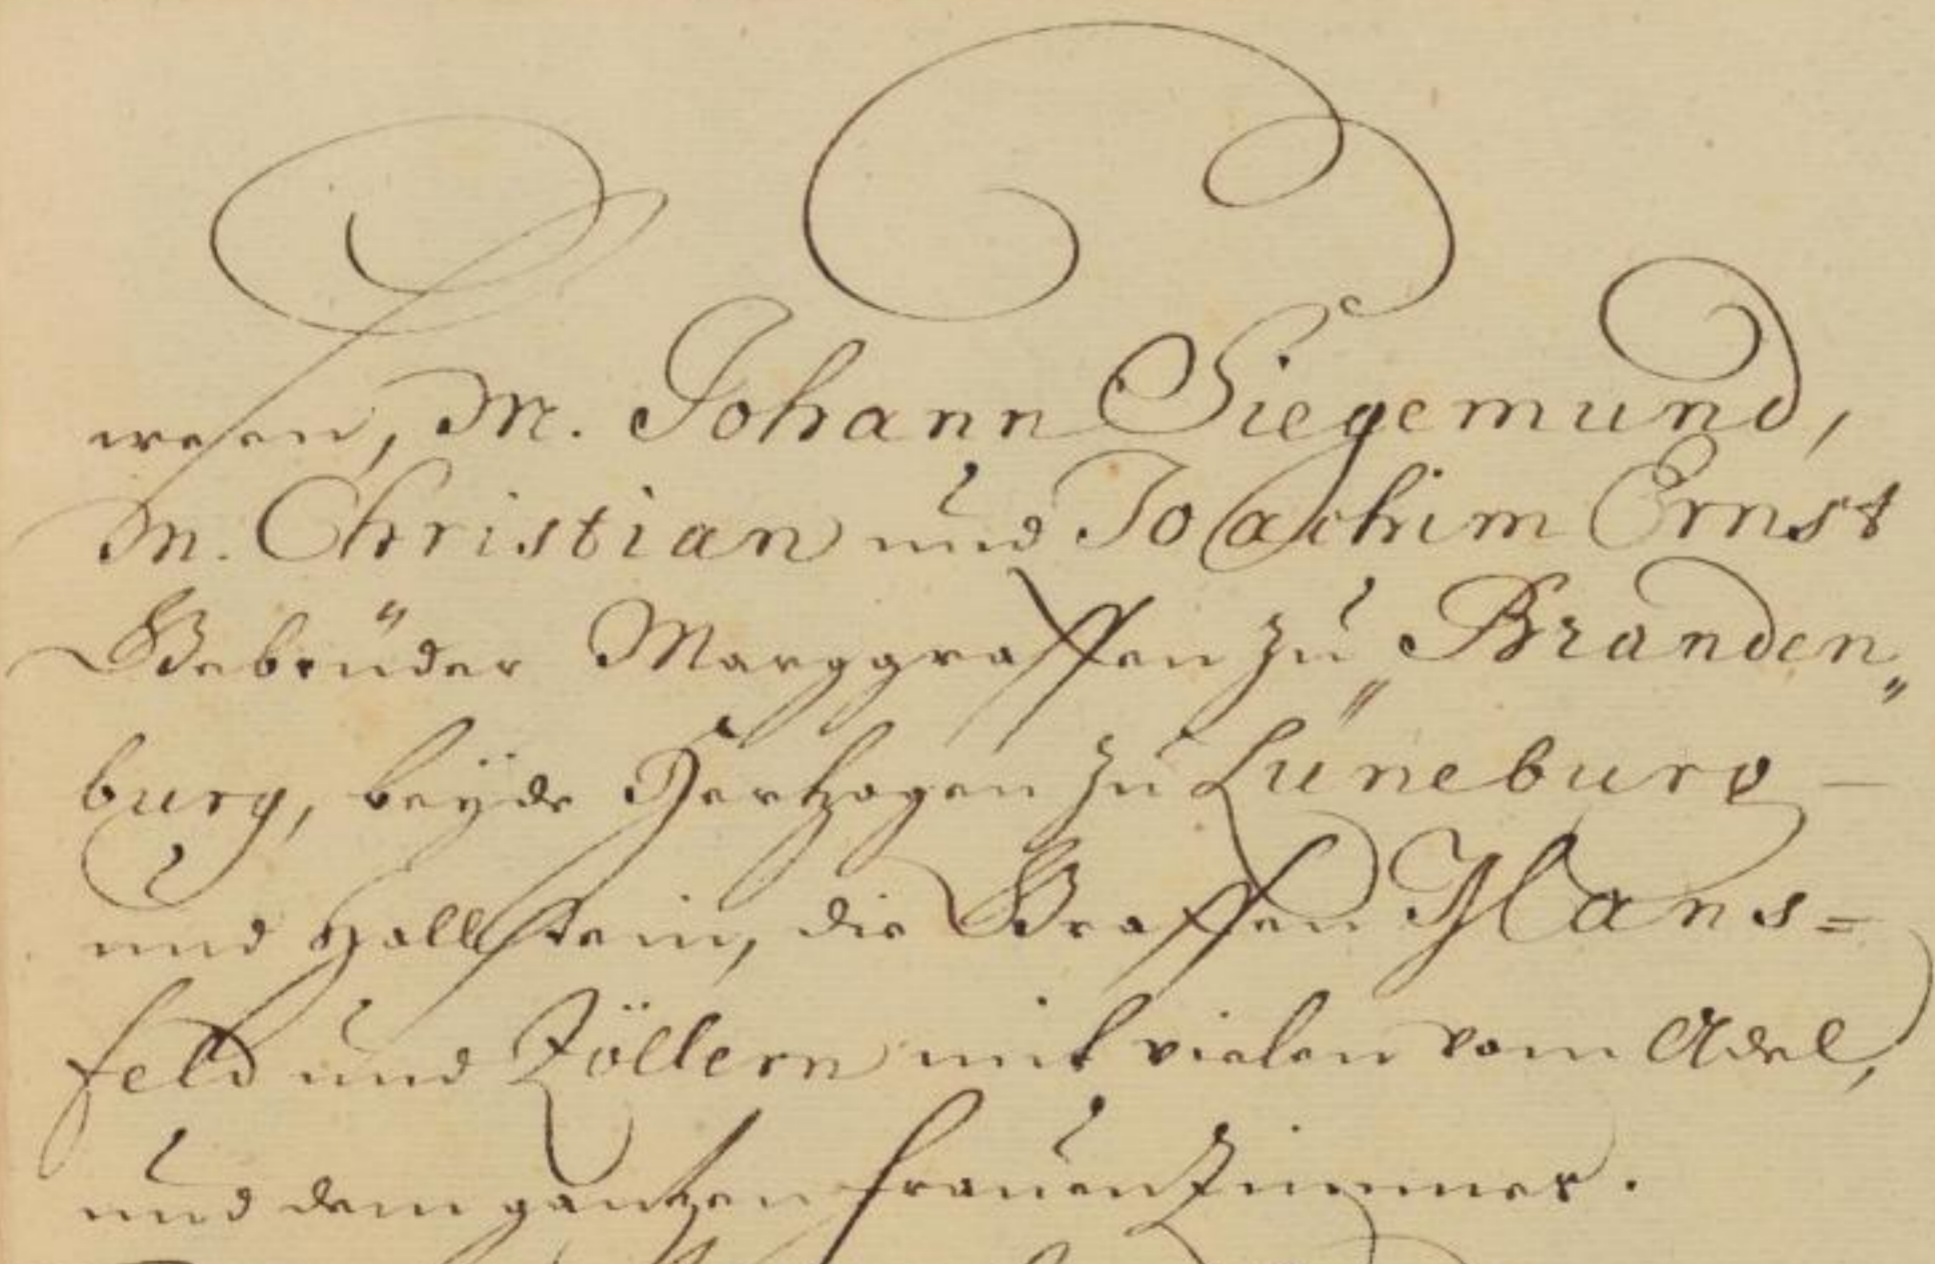 wesen, M. Johann Siegemund,
M. Christian und Joachim Ernst
Gebrüder Marggraffen zu Branden„
burg, beÿde Hertzogen zu Lüneburg –
und Hollstein, die Graffen Mans=
feld und Zöllern mit vielen vom Adel,
und dem gantzen Frauenzimmer.